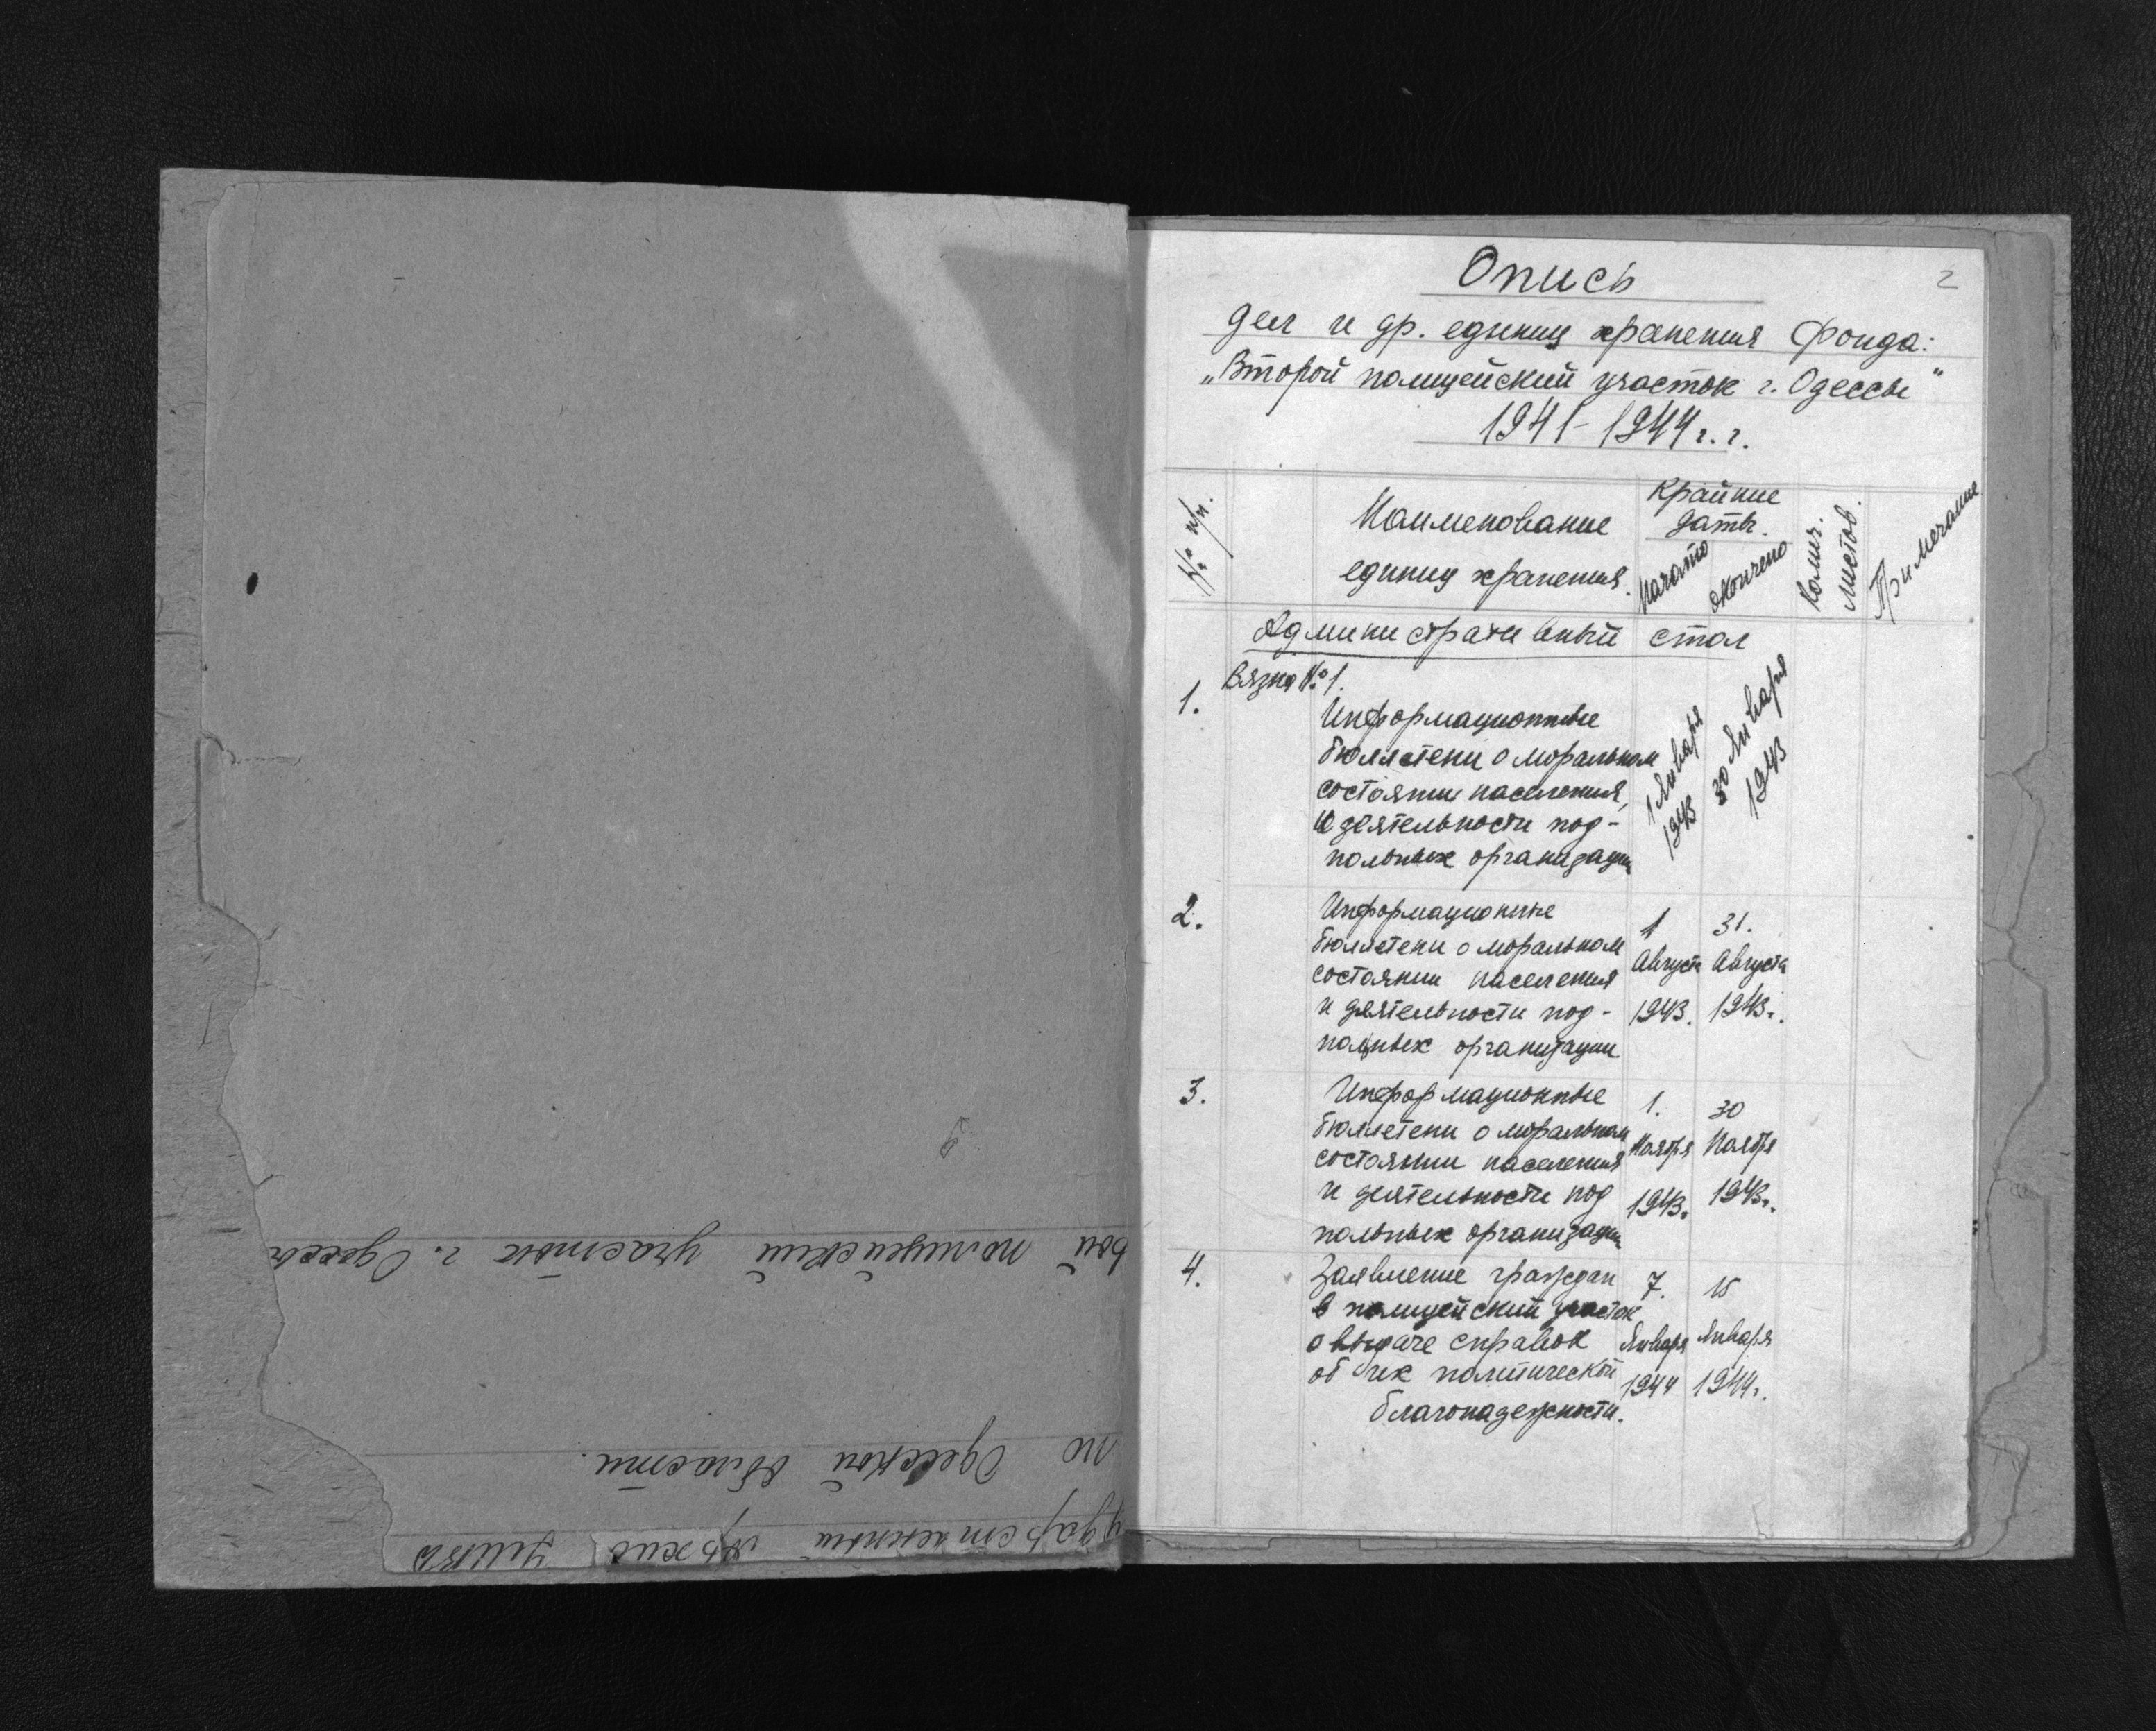 2
Опись
дел и др. единиц хранения Фонда:
„Второй полицейский участок г. Одессы"
1941-1944 г.г.
№ п/п.
Наименование
единиц хранения.
Крайние
даты.
Начато
окончено
Колич.
листов.
Примечание
Административный стол
Вязка № 1.
1.
Информационные
бюллетени о моральном
состоянии населения,
и деятельности под-
польных организаций
1 Января
1943
30 Января
1943
2.
Информационные
бюллетени о моральном
состоянии населения
и деятельности под-
польных организации
1
Августа
1943.
31.
Августа
1943г.
3.
Информационные
бюллетени о моральном
состоянии населения
и деятельности под
польных организации
1.
Ноября
1943г.
30
Ноября
1943г.
4.
Заявление граждан
в полицейский участок
о выдаче справок
об их политической
благонадежности.
7.
Января
1944
15
Января
1944г.
полицейский участок г. Одессы
по Одесской области.
архив УМВД